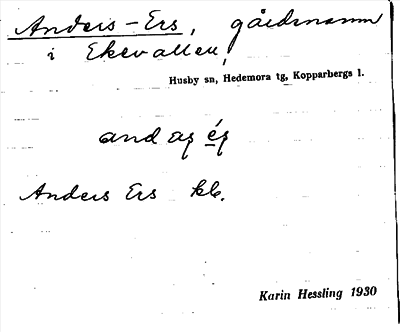 Anders-Ers, gårdsnamn
i Ekevallen,
Husby sn, Hedemora tg, Kopparbergs l.
and aʂ éʂ
Anders Ers kb.
Karin Hessling 1930